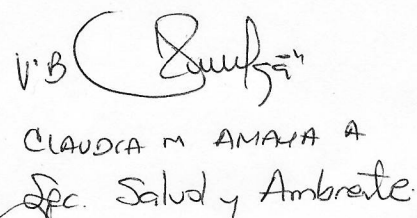 V°B
CLAUDIA M AMAYA A
Sec. Salud y Ambiente.